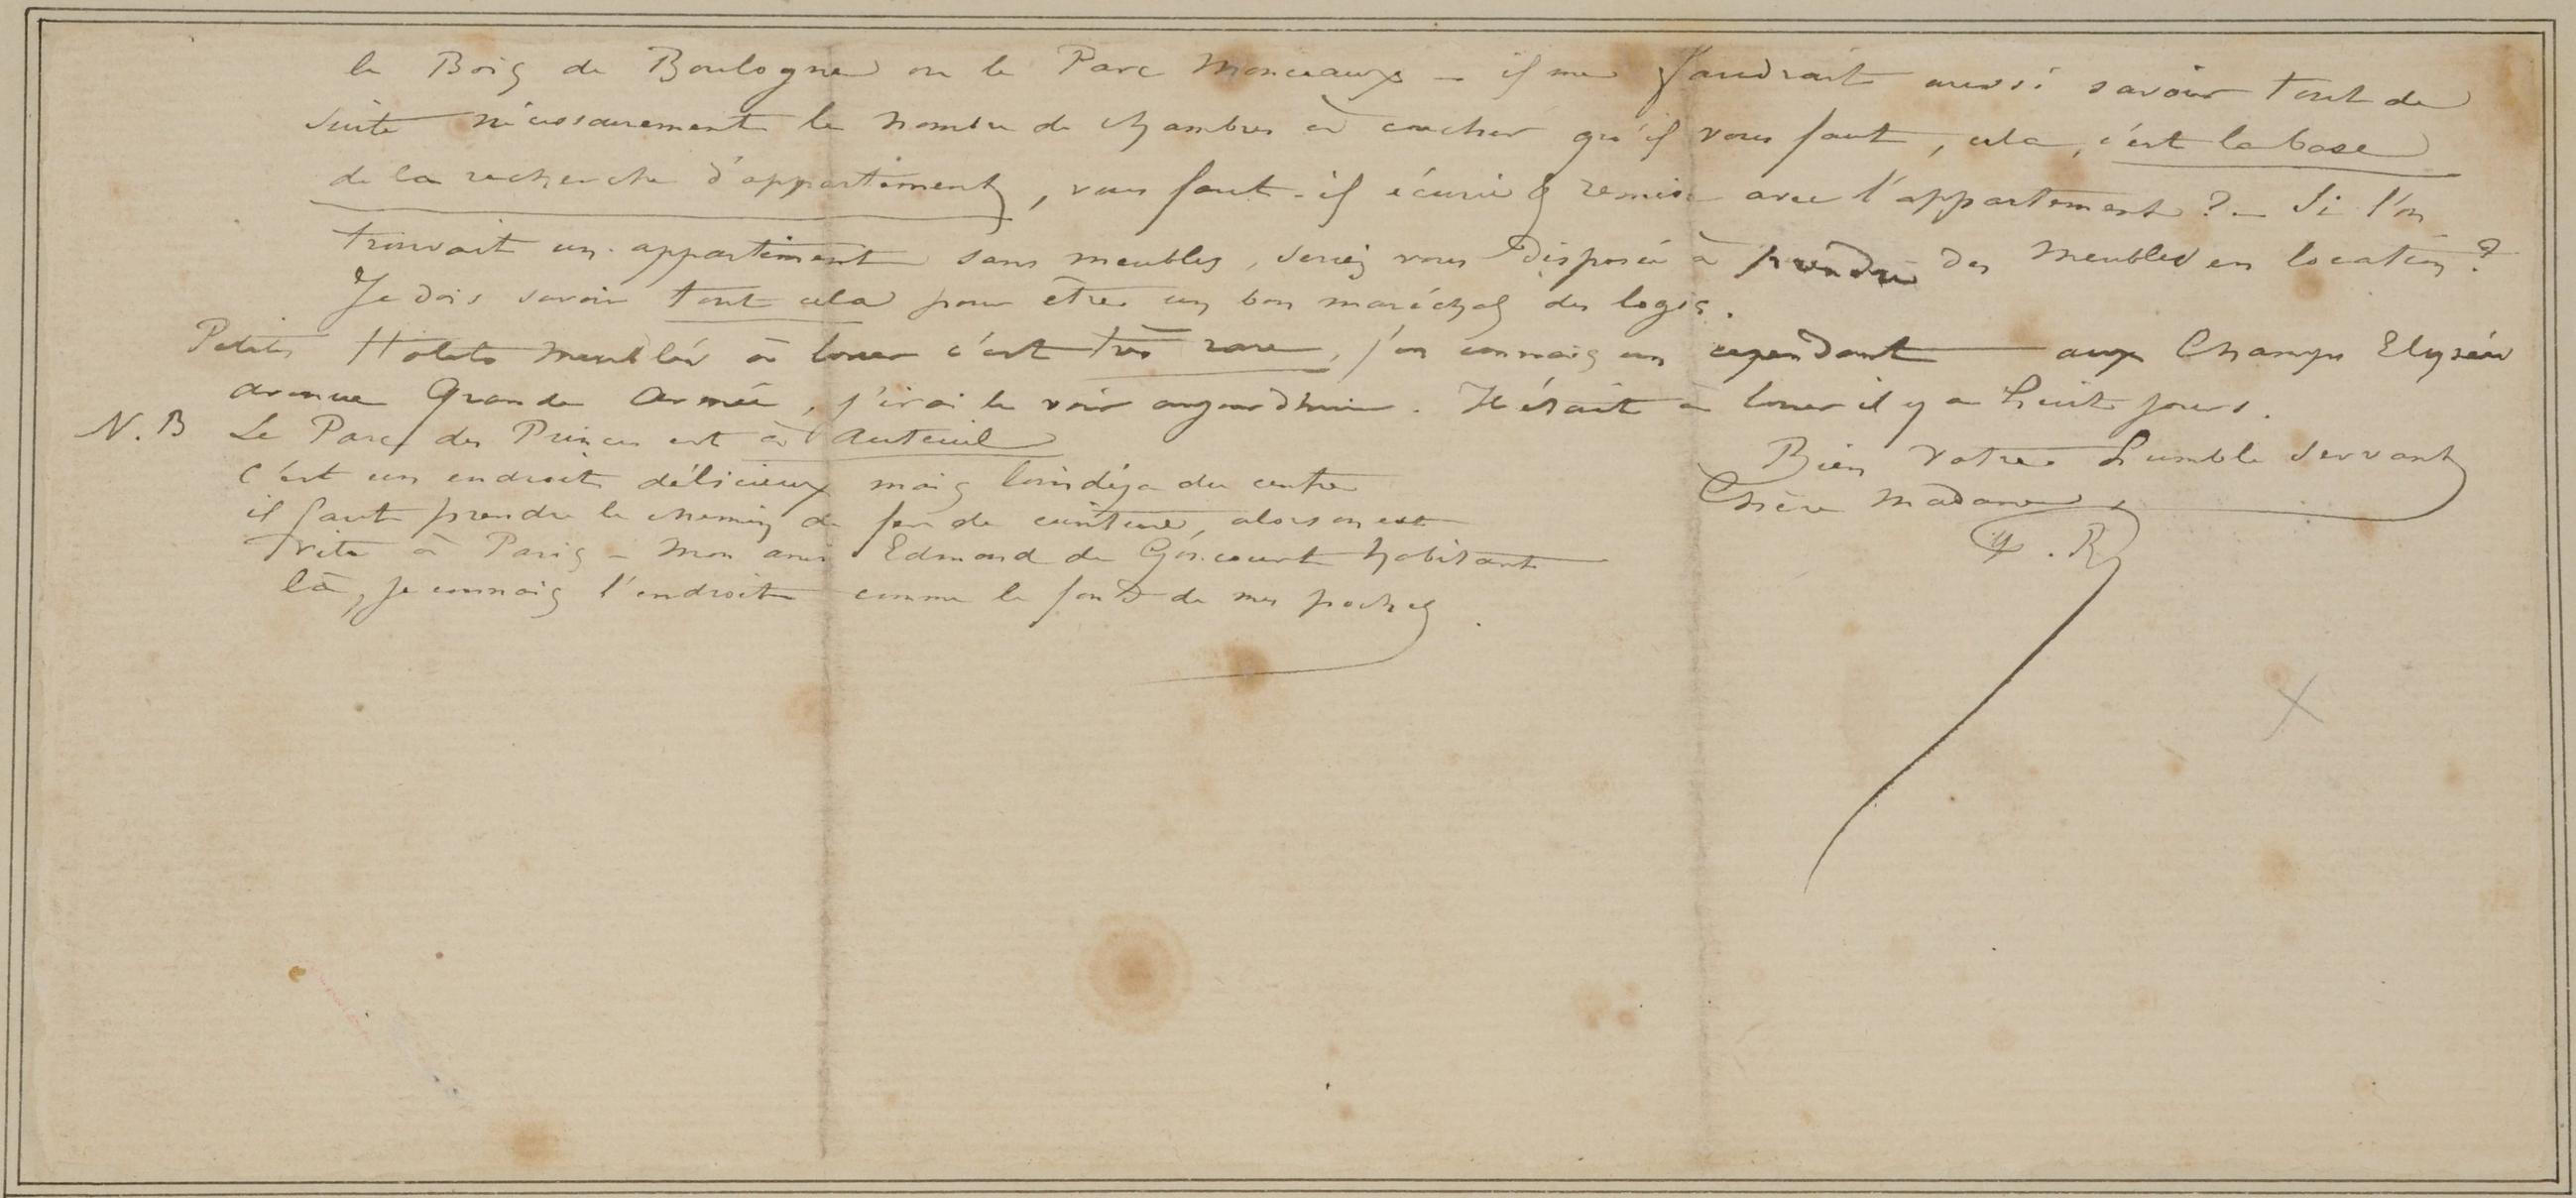 le Bois de Boulogne ou le Parc Monceaux – il me faudrait aussi savoir tout de
suite nécessairement le nombre de chambres à coucher qu'il vous faut, cela, c'est la base
de la recherche d'appartement, vous faut-il écurie & remise avec l'appartement? – Si l'on
trouvait un appartement sans meubles, seriez vous disposée à prendre des meubles en location?
Je dois savoir tout cela pour être un bon maréchal des logis.
Petits Hotels meublés à louer c'est très rare, j'en connais un cependant aux Champs Elysées
avenue Grande Armée, j'irai le voir aujourdhui. Il était à louer il y a huit jours.
N.B Le Parc des Princes est à Auteuil
c'est un endroit délicieux mais loin déja du centre
il faut prendre le chemin de fer de ceinture, alors on est
vite à Paris – Mon ami Edmond de Goncourt habitant
là, je connais l'endroit comme le fond de mes poches.
Bien votre humble servant
Chère Madame,
F. R